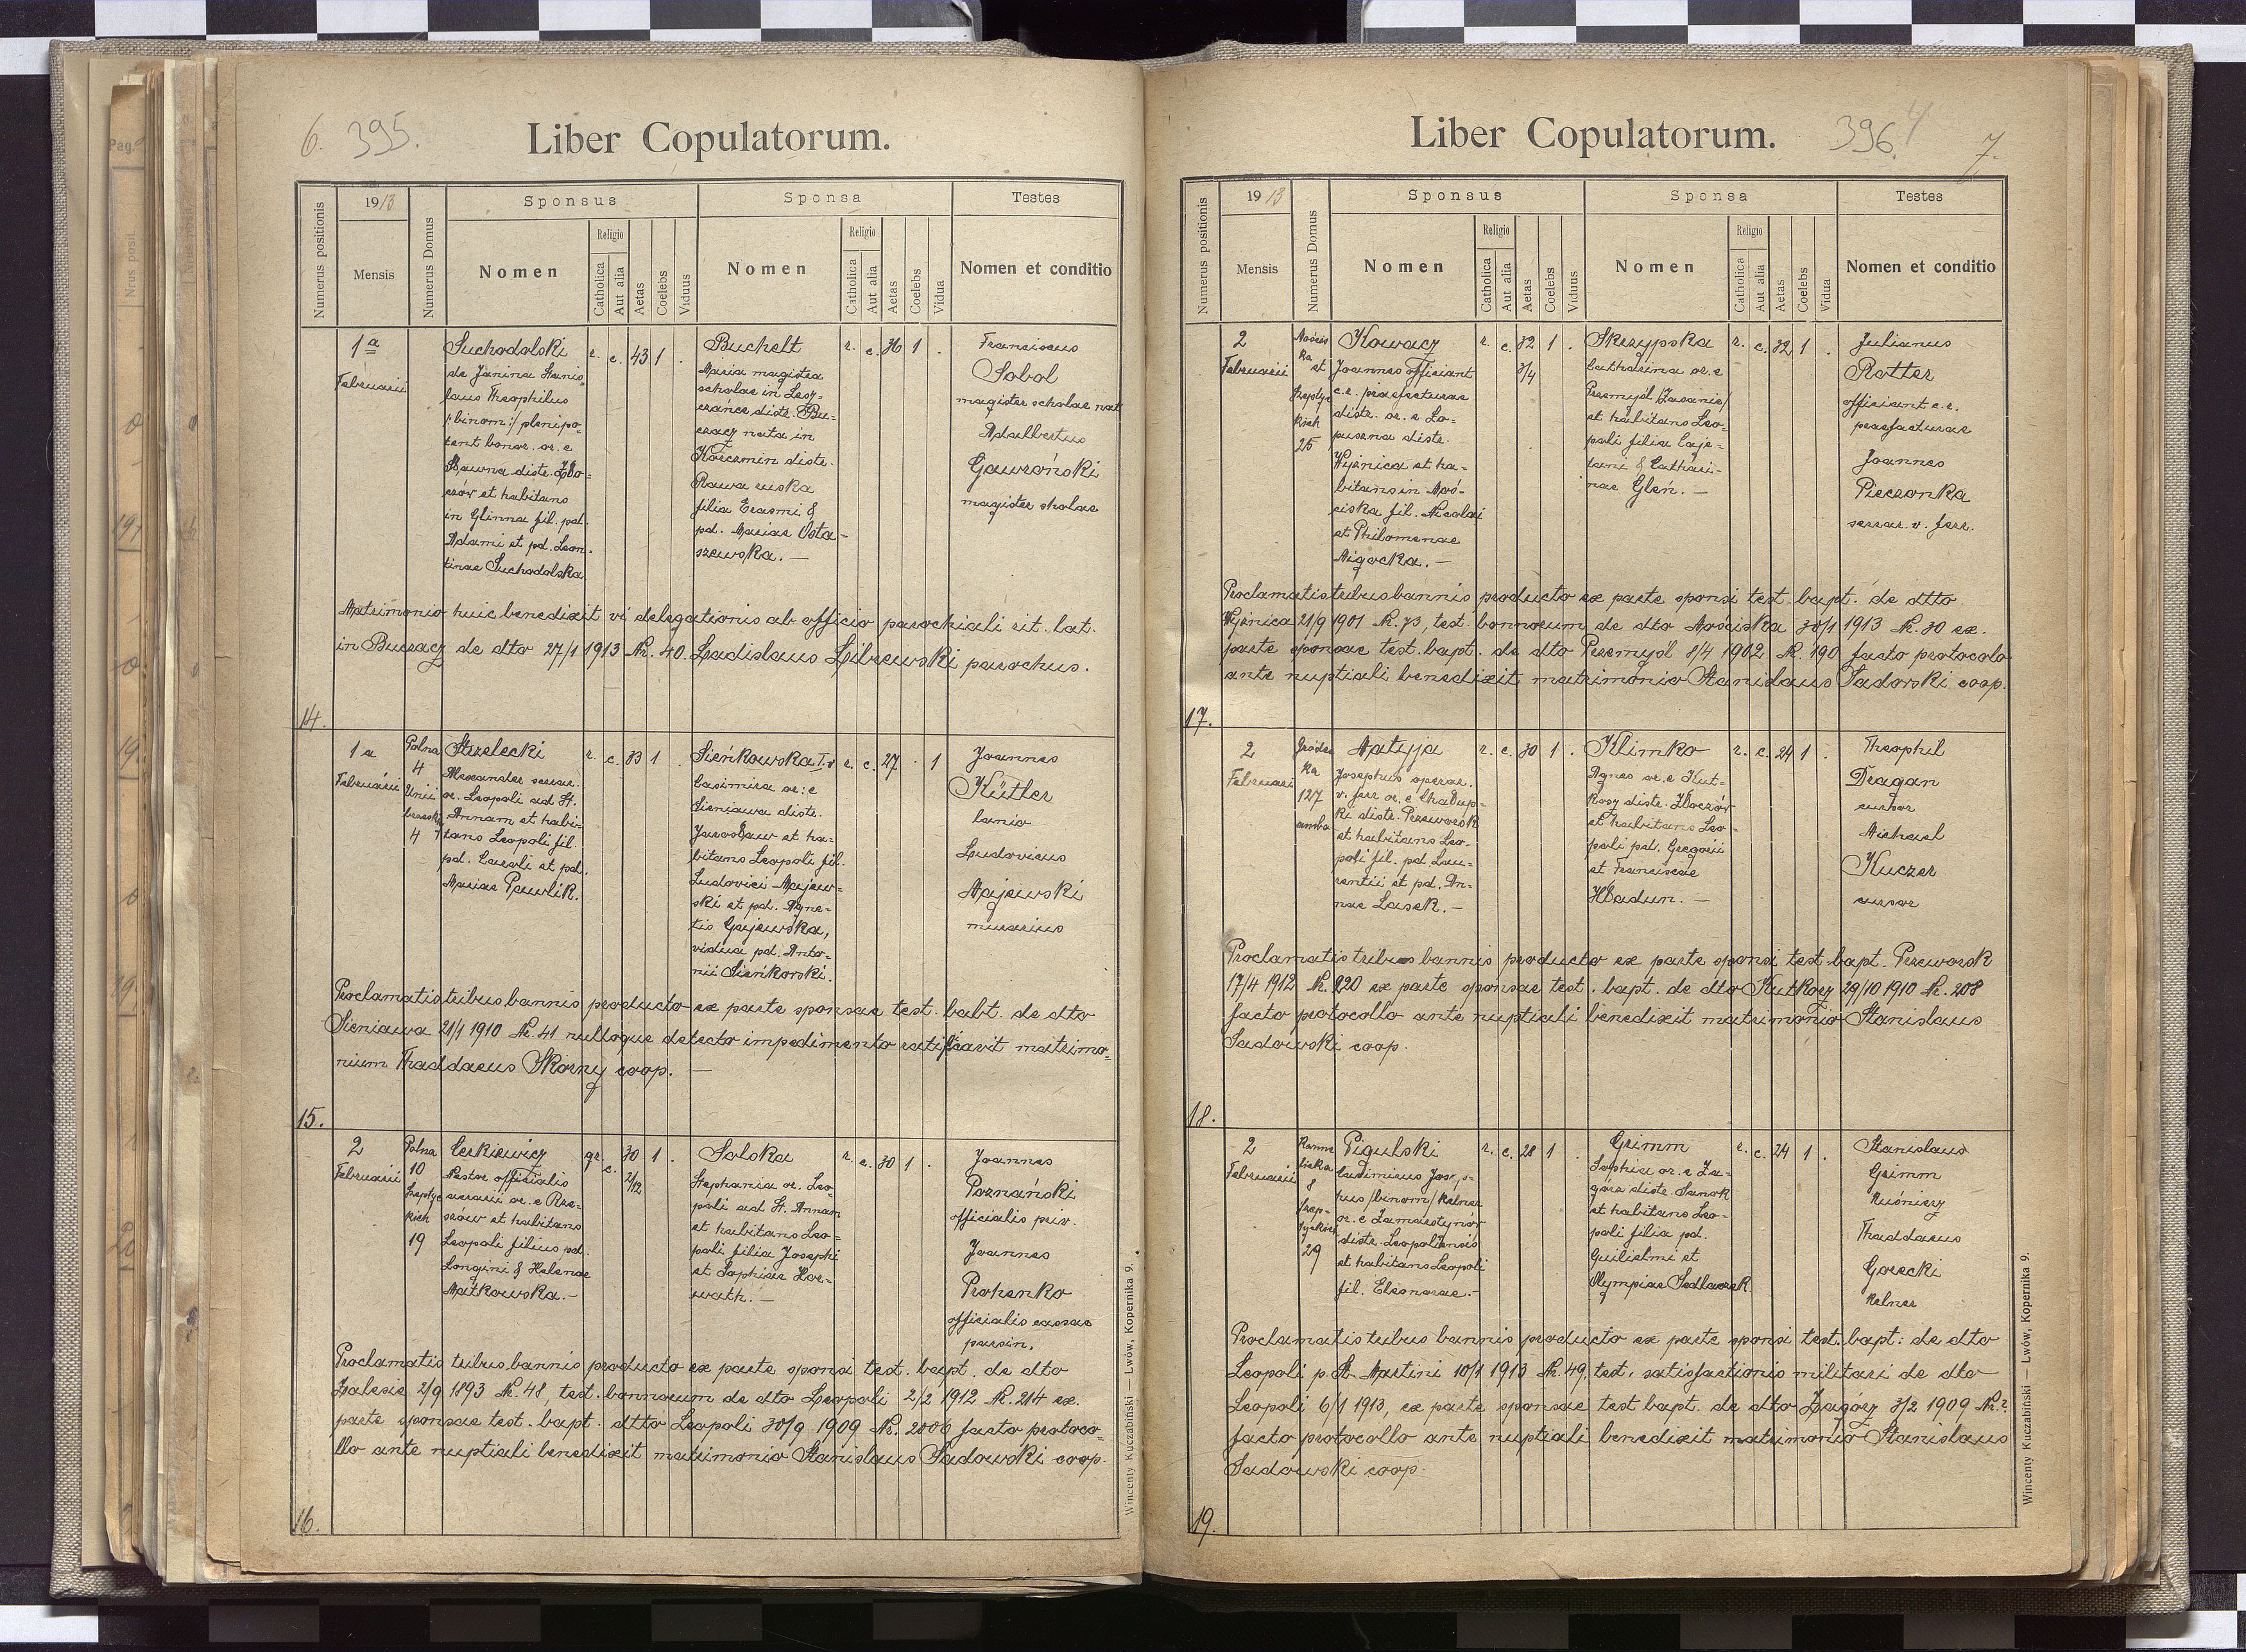 6. 395.
Liber Copulatorum.
Numerus positionis
1913
Mensis
Numerus Domus
Sponsus
Nomen
Religio
Catholica
Aut alia
Aetas
Coelebs
Viduus
Sponsa
Nomen
Religio
Catholica
Aut alia
Aetas
Coelebs
Vidua
Testes
Nomen et conditio
14.
1a
Februarii
Suchodolski
de Janina Stanis-
laus Theophilus
/:binom:/ plenipo-
tent bonor. or. e
Sławna distr. Zbo-
rów et habitans
in Glinna fil. pd.
Adami et pd. Leon-
tinae Suchodolska
r. c. 43 1 .
Buchelt
Maria magistra
scholae in Lesz-
czańce distr. Bu-
czacz nata in
Korczmin distr.
Rawa ruska
filia Erasmi &
pd. Mariae Osta-
szewska. —
r. c. 36 1 .
Franciscus
Sobol
magister scholae nat
Adalbertus
Gawroński
magister scholae
Matrimonio huic benedixit vi delegationis ab officio parochiali rit. lat.
in Buczacz de dto 27/1 1913 Nr. 40. Ladislaus Librewski parochus.
15.
1a
Februarii
Polna
4
Unii
brzeskiej
4
Strzelecki
Alexander serrar.
or. Leopoli ad St.
Annam et habi-
tans Leopoli fil.
pd. Caroli et pd.
Mariae Pawlik.
r. c. 33 1 .
Sieńkowska I.v
Casimira or: e
Sieniawa distr.
Jarosław et ha-
bitans Leopoli fil.
Ludovici Majew-
ski et pd. Agne-
tis Gajewska,
vidua pd. Anto-
nii Sieńkowski.
r. c. 27 . 1
Joannes
Küttler
lanio
Ludovicus
Majewski
murarius
Proclamatis tribus bannis producto ex parte sponsae test. babt. de dto
Sieniawa 21/1 1910 Nr. 41 nulloque detecto impedimento ratificavit matrimo-
nium Thaddaeus Skorny coop. —
16.
2
Februarii
Polna
10
Szeptyc
kich
19
Cerkiewicz
Nestor officialis
aerarii or. e Rze-
szów et habitans
Leopoli filius pd.
Longini & Helenae
Mátkowska. -
gr. c. 30 2/12 1 .
Salska
Stephania or. Leo-
poli ad St. Annam
et habitans Leo-
poli filia Josephi
et Sophiae Hor-
wath. —
r. c. 30 1 .
Joannes
Poznański
officialis priv.
Joannes
Prohenko
officialis cassae
parsin.
Proclamatis tribus bannis producto ex parte sponsi test. bapt. de dto
Zalesie 2/9 1893 Nr. 48, test. bonnorum de dto Leopoli 2/2 1912 Nr. 214 ex.
parte sponsae test. bapt. dtto Leopoli 30/9 1909 Nr. 2000 facto protoco-
llo ante nuptiali benedixit matrimonio Stanislaus Sadowski coop.
Wincenty Kuczabiński — Lwów, Kopernika 9.
Liber Copulatorum.
396. 4
7.
Numerus positionis
1913
Mensis
Numerus Domus
Sponsus
Nomen
Religio
Catholica
Aut alia
Aetas
Coelebs
Viduus
Sponsa
Nomen
Religio
Catholica
Aut alia
Aetas
Coelebs
Vidua
Testes
Nomen et conditio
17.
2
Februarii
Mościs
ka
et
Szeptyc
kich
25
Kowacz
Joannes officiant
c.r. praefecturae
distr. or. e Lo-
puszna distr.
Wyżnica et ha-
bitans in Moś-
ciska fil. Nicolai
et Philomenae
Migocka. —
r. c. 32 3/4 1 .
Skrzypska
Catharina or. e
Przemyśl /Zasanie/
et habitans Leo-
poli filia Caje-
tani & Cathari-
nae Gleń. —
r. c. 32 1 .
Julianus
Rotter
officiant c.r.
praefecturae
Joannes
Pieczonka
serrar. v. ferr.
Proclamatis tribus bannis producto ex parte sponsi test. bapt. de dtto
Wyżnica 21/9 1901 Nr. 73, test. bonnorum de dto Mościska 30/1 1913 Nr. 30 ex.
parte sponsae test. bapt. de dto Przemyśl 8/4 1902 Nr. 190 facto protocolo
ante nuptiali benedixit matrimonio Stanislaus Sadowski coop.
18.
2
Februarii
Gródec
ka
127
ambo
Matyja
Josephus operar.
v. ferr or. e Chałup-
ki distr. Przeworsk
et habitans Leo-
poli fil. pd. Lau-
rentii et pd. An-
nae Lasek. —
r. c. 30 1 .
Klimko
Agnes or. e Kut-
korz distr. Złoczów
et habitans Leo-
poli pd. Gregorii
et Franciscae
Hładun. —
r. c. 24 1 .
Theophil
Dragan
cursor
Michael
Kuczer
cursor
Proclamatis tribus bannis producto ex parte sponsi test bapt. Przeworsk
17/4 1912 Nr. 220 ex parte sponsae test. bapt. de dto Kutkorz 29/10 1910 Nr. 208
facto protocollo ante nuptiali benedixit matrimonio Stanislaus
Sadowski coop.
19.
2
Februarii
8
29
Pigulski
Casimirus Jose-
hus /binom/ kelner
or. e Zamarstynów
distr. Leopoliensis
et habitans Leopoli
fil. Eleonorae. -
r. c. 28 1 .
Grimm
Sophia or. e Za-
górz distr. Sanok
et habitans Leo-
poli filia pd.
Guilielmi et
Olympiae Sedlaczek
r. c. 24 1 .
Stanislaus
Grimm
kuśnierz
Thaddaeus
Gorecki
kelner
Proclamatis tribus bannis producto ex parte sponsi test. bapt: de dto
Leopoli p. St. Martini 10/1 1913 Nr. 49, test. satisfactionis militari de dto
Leopoli 6/1 1913, ex parte sponsae test bapt. de dto Zagórz 3/2 1909 Nr.?
facto protocollo ante nuptiali benedixit matrimonio Stanislaus
Sadowski coop.
Wincenty Kuczabiński — Lwów, Kopernika 9.